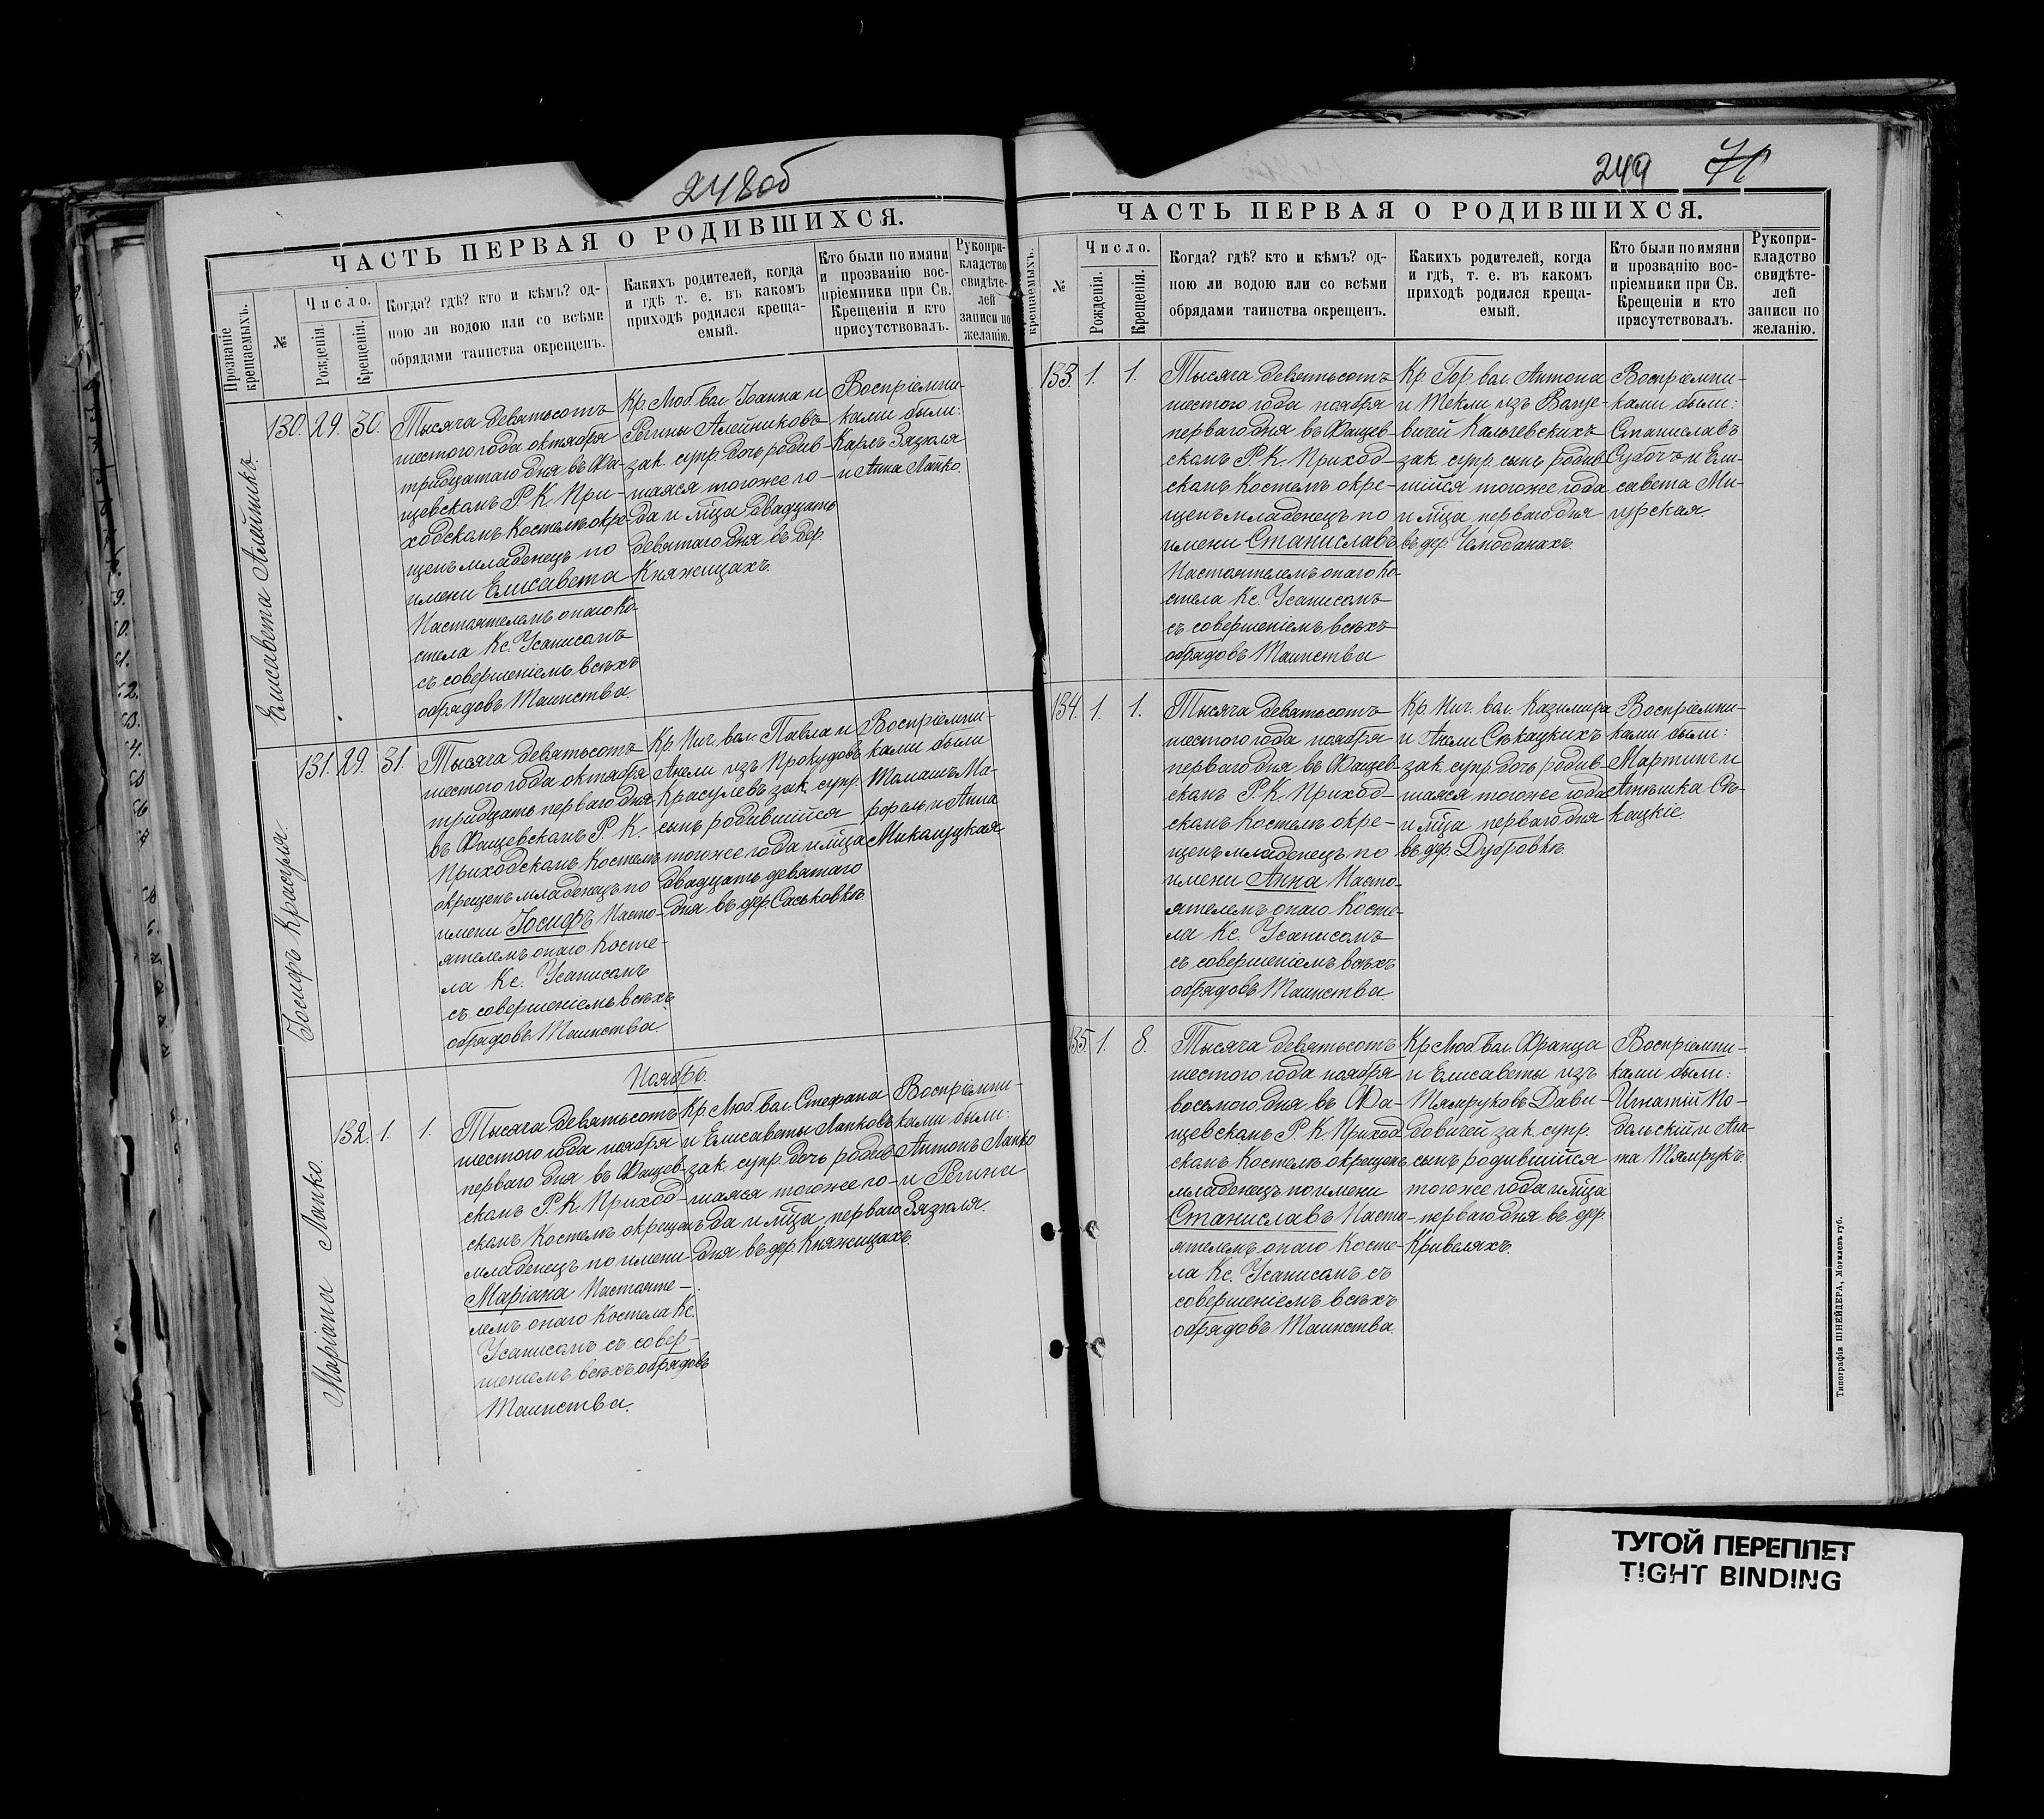 248об
ЧАСТЬ ПЕРВАЯ О РОДИВШИХСЯ.
Прозваніе крещаемыхъ.
№
Число.
Рожденія.
Крещенія.
Когда? гдѣ? кто и кѣмъ? од-
ною ли водою или со всѣми
обрядами таинства окрещенъ.
Какихъ родителей, когда
и гдѣ т. е. въ какомъ
приходѣ родился креща-
емый.
Кто были по имяни
и прозванію вос-
пріемники при Св.
Крещеніи и кто
присутствовалъ.
Рукопри-
кладство
свидѣте-
лей
записи по
желанію.
Елисавета Алейникъ.
130. 29. 30.
Тысяча девятьсотъ
шестого года октября
тридцатаго дня въ Фа-
щевскомъ Р. К. При-
ходскомъ Костелѣ окре-
щенъ младенецъ по
имени Елисавета
Настоятелемъ онаго Ко-
стела Кс. Усанисомъ
съ совершеніемъ всѣхъ
обрядовъ Таинства.
Кр. Люб. вол. Іоанна и
Регины Алейниковъ
зак. супр. дочь родив-
шаяся тогоже го-
да и мѣца двадцать
девятаго дня въ дер.
Княжицахъ.
Воспріемни-
ками были:
Карлъ Зязюля
и Анна Лапко.
Іосифъ Красуля.
131. 29. 31.
Тысяча девятьсотъ
шестого года октября
тридцать перваго дня
въ Фащевскомъ Р. К.
Приходскомъ Костелѣ
окрещенъ младенецъ по
имени Іосифъ Насто-
ятелемъ онаго Косте-
ла Кс. Усанисомъ
съ совершеніемъ всѣхъ
обрядовъ Таинства.
Кр. Нич. вол. Павла и
Анели изъ Прокудовъ
Красулевъ зак. супр.
сынъ родившійся
тогоже года и мѣца
двадцать девятаго
дня въ дер. Саськовкѣ.
Воспріемни-
ками были
Томашъ Ма-
рфель и Анна
Миколуцкая
Ноябрь.
Маріана Лапко.
132. 1. 1.
Тысяча девятьсотъ
шестого года ноября
перваго дня въ Фащев-
скомъ Р. К. Приход-
скомъ Костелѣ окрещенъ
младенецъ по имени
Маріана Настояте-
лемъ онаго Костела Кс.
Усанисомъ съ совер-
шеніемъ всѣхъ обрядовъ
Таинства.
Кр. Люб. вол. Стефана
и Елисаветы Лапковъ
зак. супр. дочь родив-
шаяся тогоже го-
да и мѣца перваго
дня въ дер. Княжицахъ.
Воспріемни-
ками были:
Антонъ Лапко
и Регина
Зязюля.
249 71
ЧАСТЬ ПЕРВАЯ О РОДИВШИХСЯ.
крещаемыхъ.
№
Число.
Рожденія.
Крещенія.
Когда? гдѣ? кто и кѣмъ? од-
ною ли водою или со всѣми
обрядами таинства окрещенъ.
Какихъ родителей, когда
и гдѣ, т. е. въ какомъ
приходѣ родился креща-
емый.
Кто были по имяни
и прозванію вос-
пріемники при Св.
Крещеніи и кто
присутствовалъ.
Рукопри-
кладство
свидѣте-
лей
записи по
желанію.
133. 1. 1.
Тысяча девятьсотъ
шестого года ноября
перваго дня въ Фащев-
скомъ Р. К. Приход-
скомъ Костелѣ окре-
щенъ младенецъ по
имени Станиславъ
Настоятелемъ онаго Ко-
стела Кс. Усанисомъ
съ совершеніемъ всѣхъ
обрядовъ Таинства
Кр. Гор. вол. Антона
и Текли изъ
Кальчевскихъ
зак. супр. сынъ родив-
шійся тогоже года
и мѣца перваго дня
въ дер. Чемоданахъ.
Воспріемни-
ками были:
Станиславъ
Субочъ и Ели-
савета Ми-
гурская.
134. 1. 1.
Тысяча девятьсотъ
шестого года ноября
перваго дня въ Фащев-
скомъ Р. К. Приход-
скомъ Костелѣ окре-
щенъ младенецъ по
имени Анна Насто-
ятелемъ онаго Косте-
ла Кс. Усанисомъ
съ совершеніемъ всѣхъ
обрядовъ Таинства.
Кр. Нич. вол. Казимира
и Анели Сѣкацкихъ
зак. супр. дочь родив-
шаяся тогоже года
и мѣца перваго дня
въ дер. Дубровкѣ.
Воспріемни-
ками были:
Мартинъ и
Агнѣшка Сѣ-
кацкіе.
135. 1. 8.
Тысяча девятьсотъ
шестого года ноября
восьмого дня въ Фа-
щевскомъ Р. К. Приход-
скомъ Костелѣ окрещенъ
младенецъ по имени
Станиславъ Насто-
ятелемъ онаго Косте-
ла Кс. Усанисомъ съ
совершеніемъ всѣхъ
обрядовъ Таинства.
Кр. Люб. вол. Франца
и Елисаветы изъ
Тямруковъ Дави-
довичей зак. супр.
сынъ родившійся
тогоже года и мѣца
перваго дня въ дер.
Кривеляхъ.
Воспріемни-
ками были:
Игнатій По-
дольскій и Ага-
та Тямрукъ.
Типографія ШНЕЙДЕРА, Могилевъ губ.
ТУГОЙ ПЕРЕПЛЕТ
TIGHT BINDING